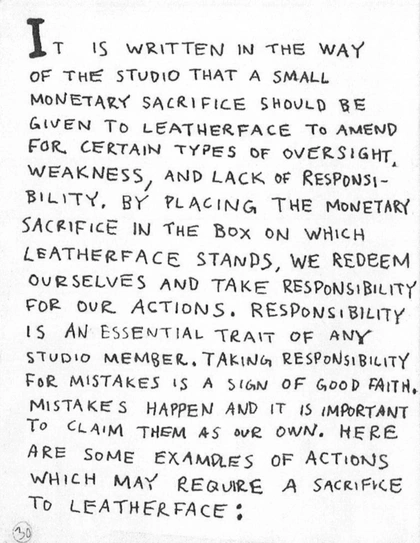 IT IS WRITTEN IN THE WAY
OF THE STUDIO THAT A SMALL
MONETARY SACRIFICE SHOULD BE
GIVEN TO LEATHERFACE TO AMEND
FOR CERTAIN TYPES OF OVERSIGHT,
WEAKNESS, AND LACK OF RESPONSI-
BILITY. BY PLACING THE MONETARY
SACRIFICE IN THE BOX ON WHICH
LEATHERFACE STANDS, WE REDEEM
OURSELVES AND TAKE RESPONSIBILITY
FOR OUR ACTIONS. RESPONSIBILITY
IS AN ESSENTIAL TRAIT OF ANY
STUDIO MEMBER. TAKING RESPONSIBILITY
FOR MISTAKES IS A SIGN OF GOOD FAITH.
MISTAKES HAPPEN AND IT IS IMPORTANT
TO CLAIM THEM AS OUR OWN. HERE
ARE SOME EXAMPLES OF ACTIONS
WHICH MAY REQUIRE A SACRIFICE
TO LEATHERFACE:
30